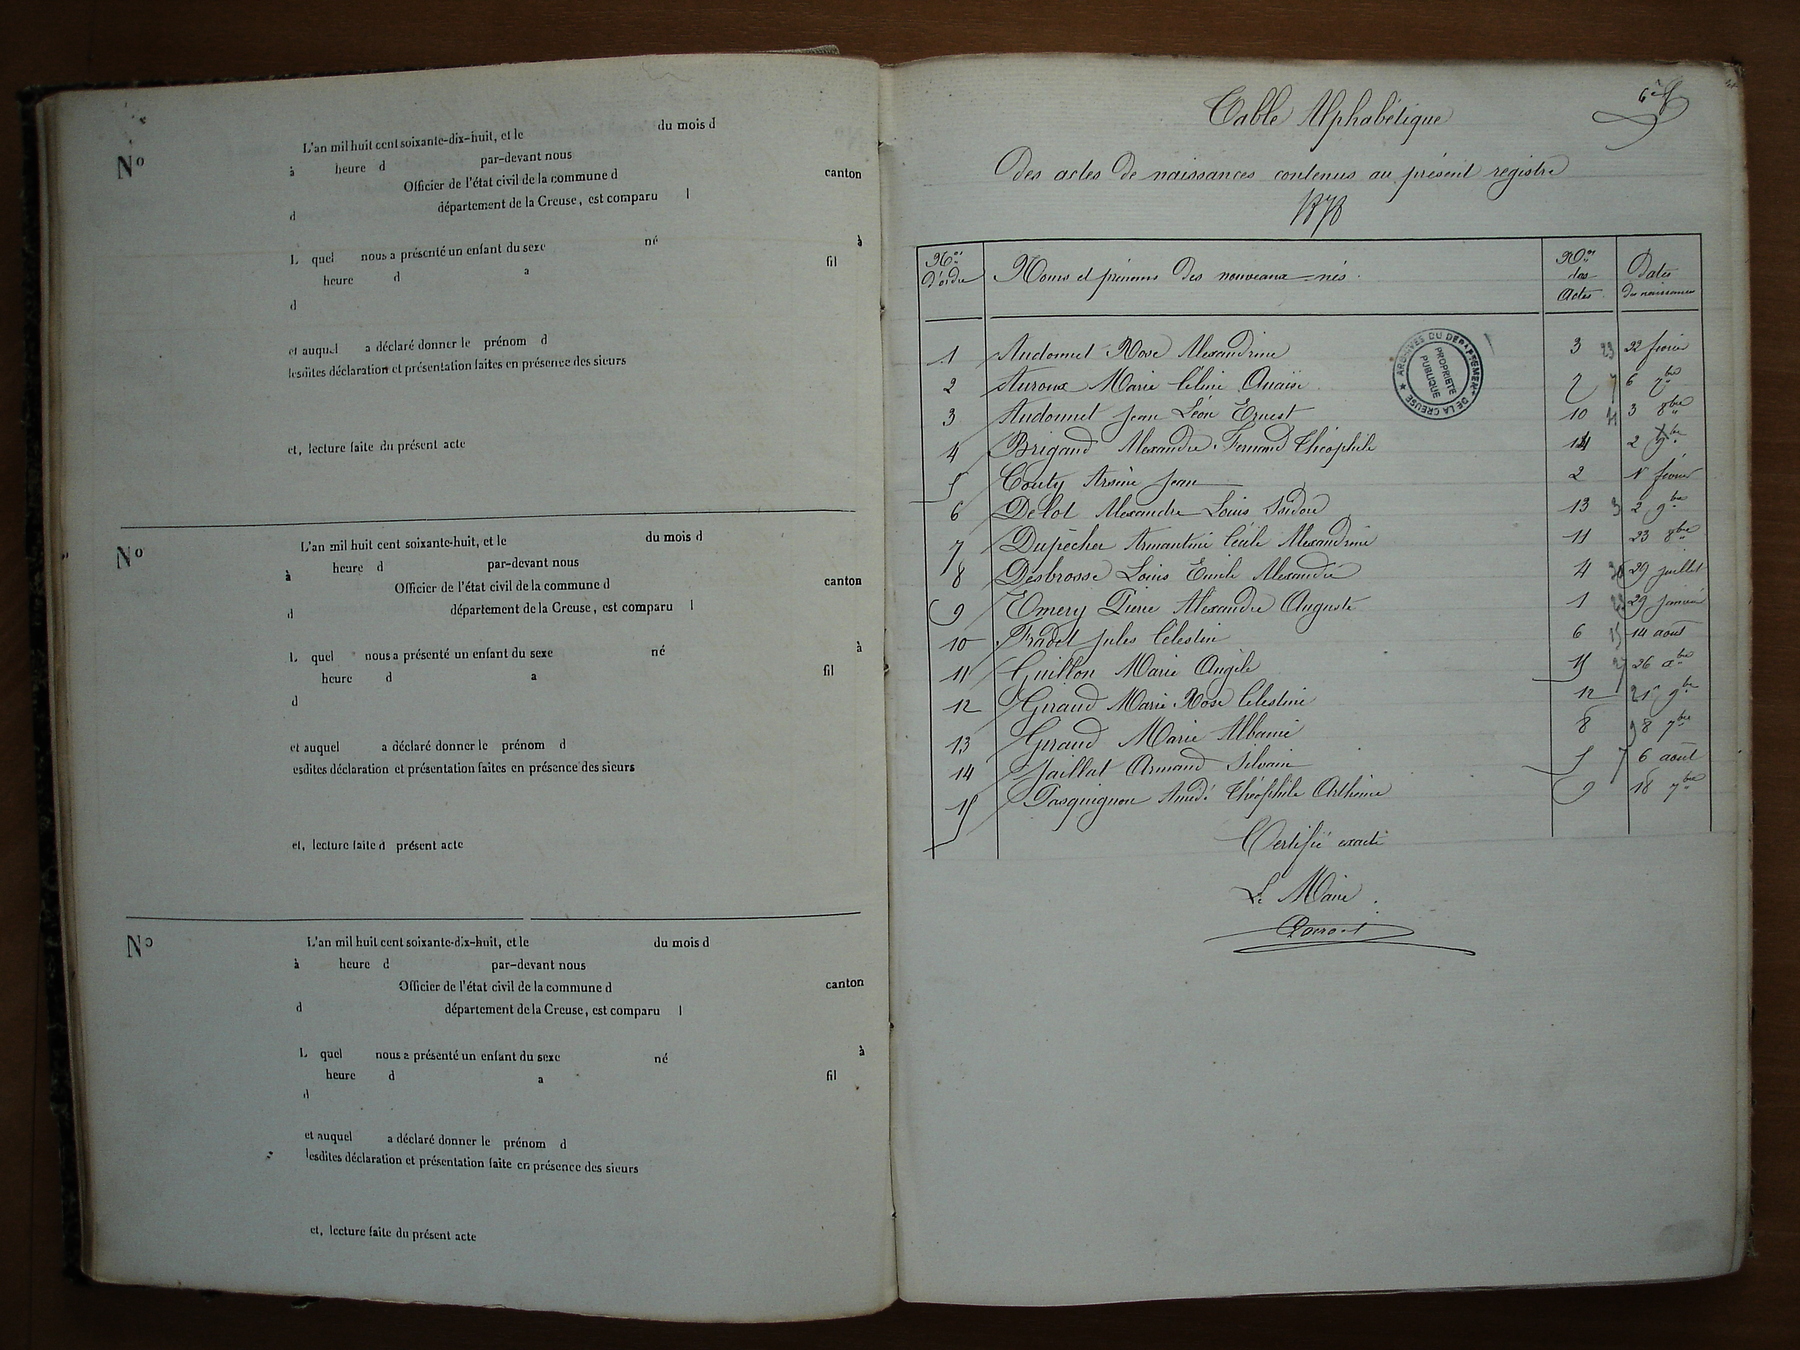 L'an mil huit cent soixante-dix-huit, et le du mois d
N° à heure d par-devant nous
Officier de l'état civil de la commune d canton
d département de la Creuse, est comparu l
L quel nous a présenté un enfant du sexe né à
heure d a fil
d
et auquel a déclaré donner le prénom d
lesdites déclaration et présentation faites en présence des sieurs
et, lecture faite du présent acte
N° L'an mil huit cent soixante-huit, et le du mois d
à heure d par-devant nous
Officier de l'état civil de la commune d canton
d département de la Creuse, est comparu l
L quel nous a présenté un enfant du sexe né à
heure d a fil
d
et auquel a déclaré donner le prénom d
esdites déclaration et présentation faites en présence des sieurs
et, lecture faite d présent acte
N° L'an mil huit cent soixante-dix-huit, et le du mois d
à heure d par-devant nous
Officier de l'état civil de la commune d canton
d département de la Creuse, est comparu l
L quel nous a présenté un enfant du sexe né à
heure d a fil
d
et auquel a déclaré donner le prénom d
lesdites déclaration et présentation faite en présence des sieurs
et, lecture faite du présent acte
Table Alphabétique
Des actes de naissances contenus au présent registre
1878
Nos d'ordre Noms et prénoms des nouveaux-nés. Nos des Actes. Dates des naissances
1 Audonnet Rose Alexandrine 3 22 février
2 Auroux Marie Céline Anaïse 7 6 7bre
3 Audonnet Jean Léon Ernest 10 3 8bre
4 Brigand Alexandre Fernand Théophile 14 2
5 Couty Arsène Jean 2 1r février
6 Delot Alexandre Louis Isidore 13 2 9bre
7 Dupêcher Armantine Cécile Alexandrine 11 23 8bre
8 Desbrosse Louis Emile Alexandre 4 29 juillet
9 Emery Pierre Alexandre Auguste 1 29 janvier
10 Fradet Jules Célestin 6 14 août
11 Guillon Marie Angèle 15 26
12 Giraud Marie Rose Célestine 12 9bre
13 Giraud Marie Albanie 8 8 7bre
14 Jaillat Armand Silvain 5 6 août
15 Pasquignon Amédé Théophile Arthème 9 18 7bre
ARCHIVES DU DEPARTEMENT DE LA CREUSE
PROPRIÉTÉ PUBLIQUE
Certifié exacte
Le Maire.